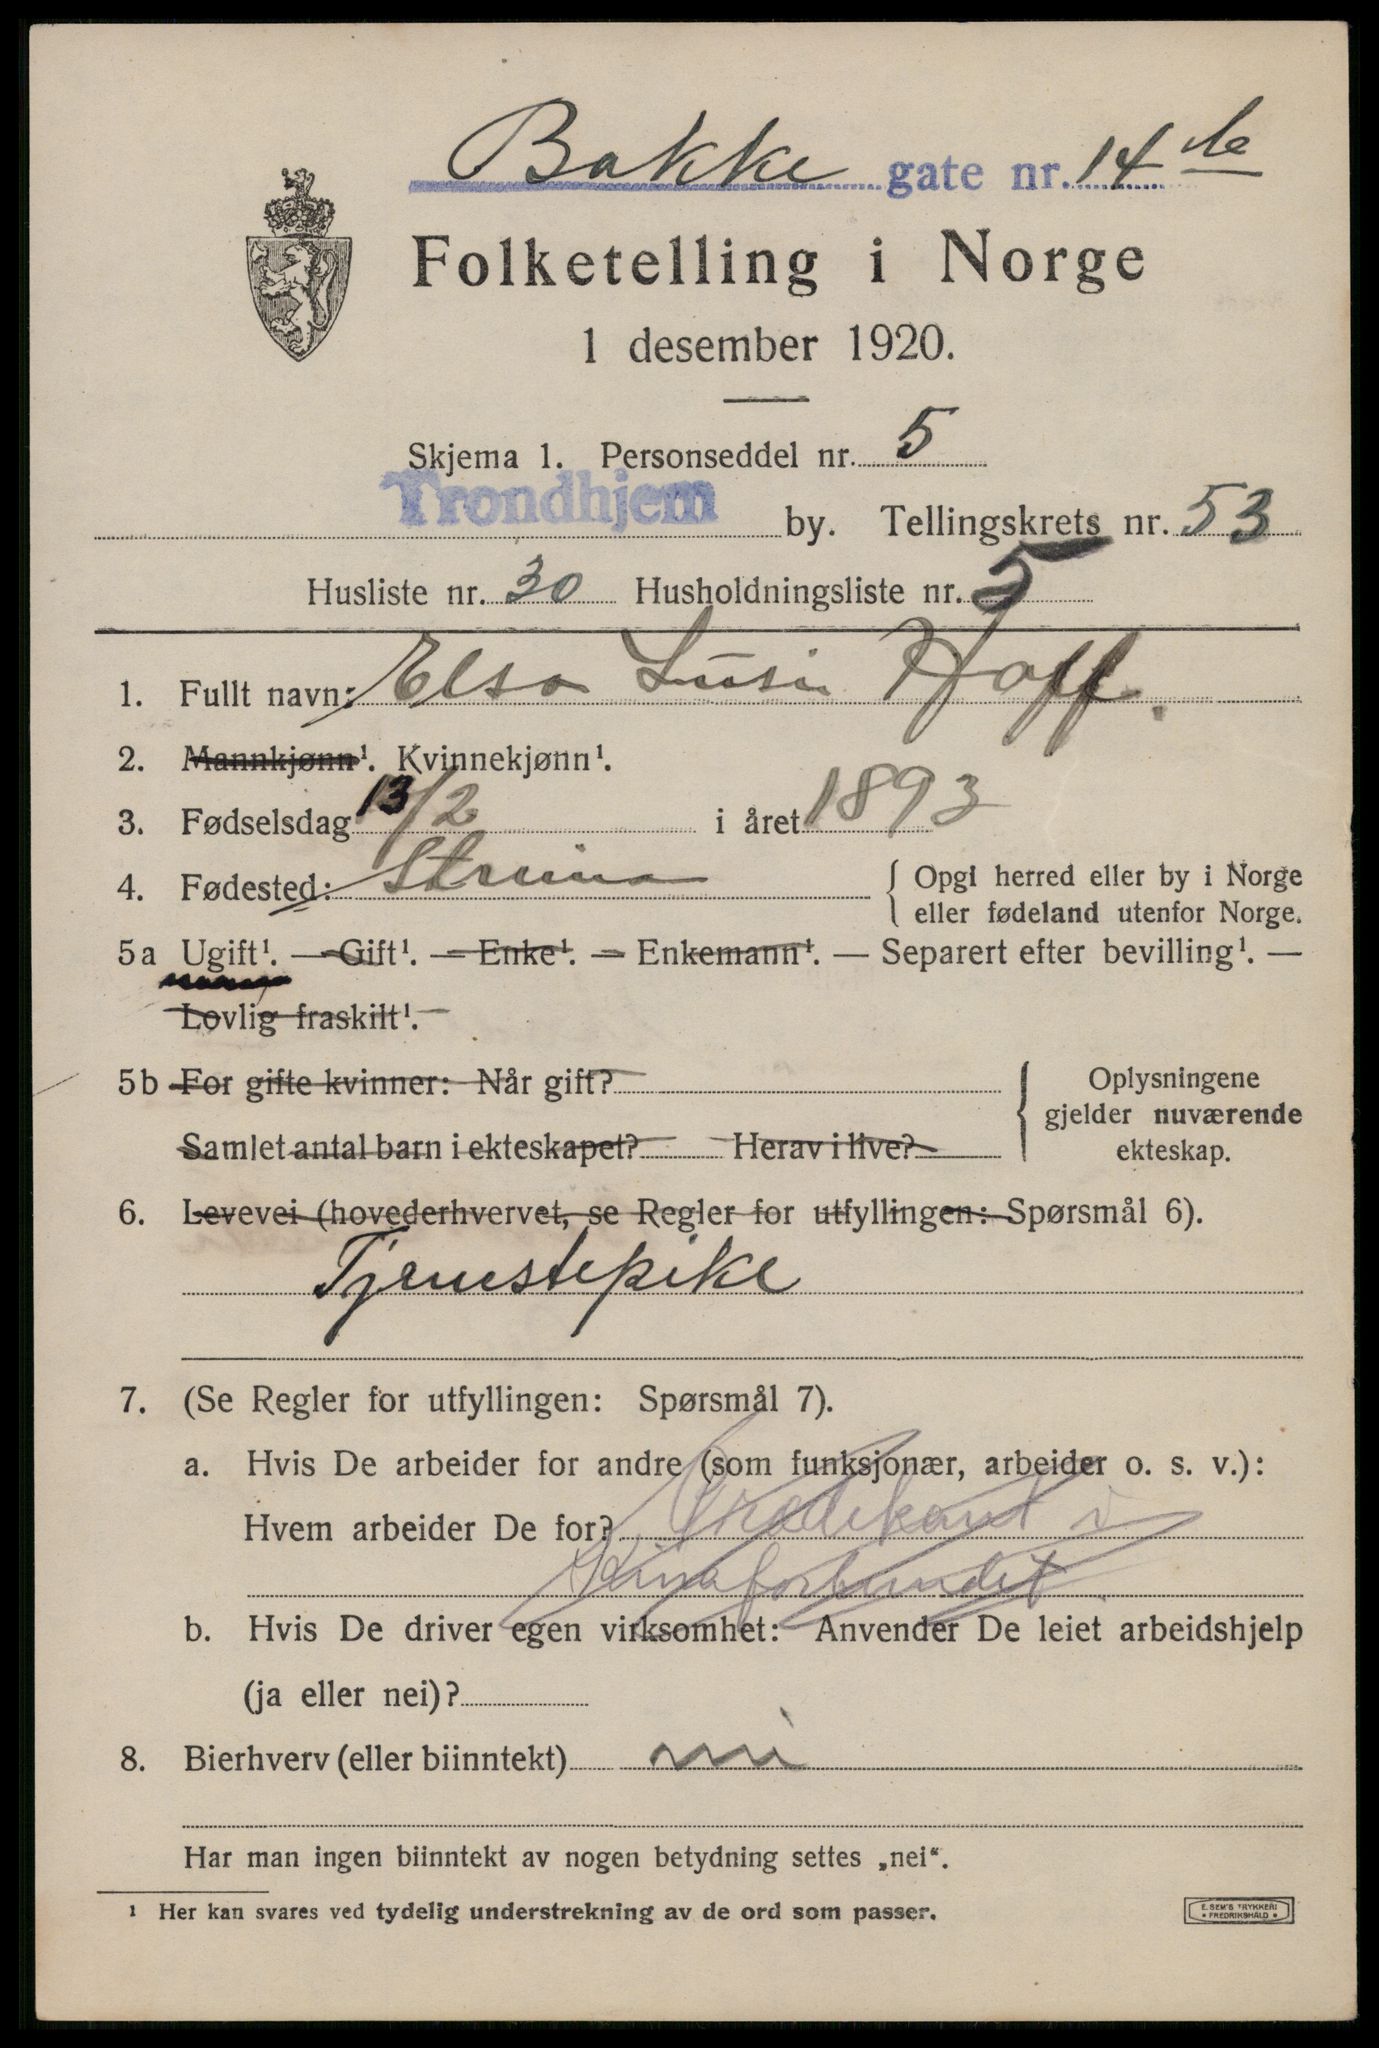 Bakke gate nr. 14 de
Folketelling i Norge
1 desember 1920.
Skjema 1. Personseddel nr. 5
Trondhjem by. Tellingskrets nr. 53
Husliste nr. 30 Husholdningsliste nr. 5
1. Fullt navn: Elsa Hoff.
2. Mannkjønn¹. Kvinnekjønn¹.
3. Fødselsdag 13/2 i året 1893
4. Fødested: Strinna { Opgi herred eller by i Norge
eller fødeland utenfor Norge.
5a Ugift¹. — Gift¹. — Enke¹. — Enkemann¹. — Separert efter bevilling¹. —
Lovlig fraskilt¹.
5b For gifte kvinner: Når gift? { Oplysningene
gjelder nuværende
Samlet antal barn i ekteskapet? Herav i live? ekteskap.
6. Levevei (hovederhvervet, se Regler for utfyllingen: Spørsmål 6).
Tjenestepike
7. (Se Regler for utfyllingen: Spørsmål 7).
a. Hvis De arbeider for andre (som funksjonær, arbeider o. s. v.):
Hvem arbeider De for? Predikant i
Kinaforbundet.
b. Hvis De driver egen virksomhet: Anvender De leiet arbeidshjelp
(ja eller nei)?
8. Bierhverv (eller biinntekt) nei
Har man ingen biinntekt av nogen betydning settes „nei“.
¹ Her kan svares ved tydelig understrekning av de ord som passer.
E. SEM'S TRYKKERI
• FREDRIKSHALD •